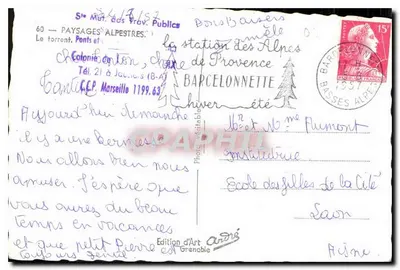 Ste Mut. des Trav. Publics
60 — PAYSAGES ALPESTRES
Le torrent.
Ponts et
Colonie
Tél. 21 à
C.C.P. Marseille 1199.63
Bons Baisers
la station des Alpes
de Provence
BARCELONNETTE
hiver été
BARCELONNETTE
BASSES ALPES
15F
Aujourd'hui dimanche
il y a une
Nous allons bien nous
amuser. J'espère que
vous aurez du beau
temps en vacances
et que petit Pierre est
toujours
Mr et Mme Aumont
Institutrice
Ecole des filles de la Cité
Laon
Aisne.
Edition d'Art André
Grenoble